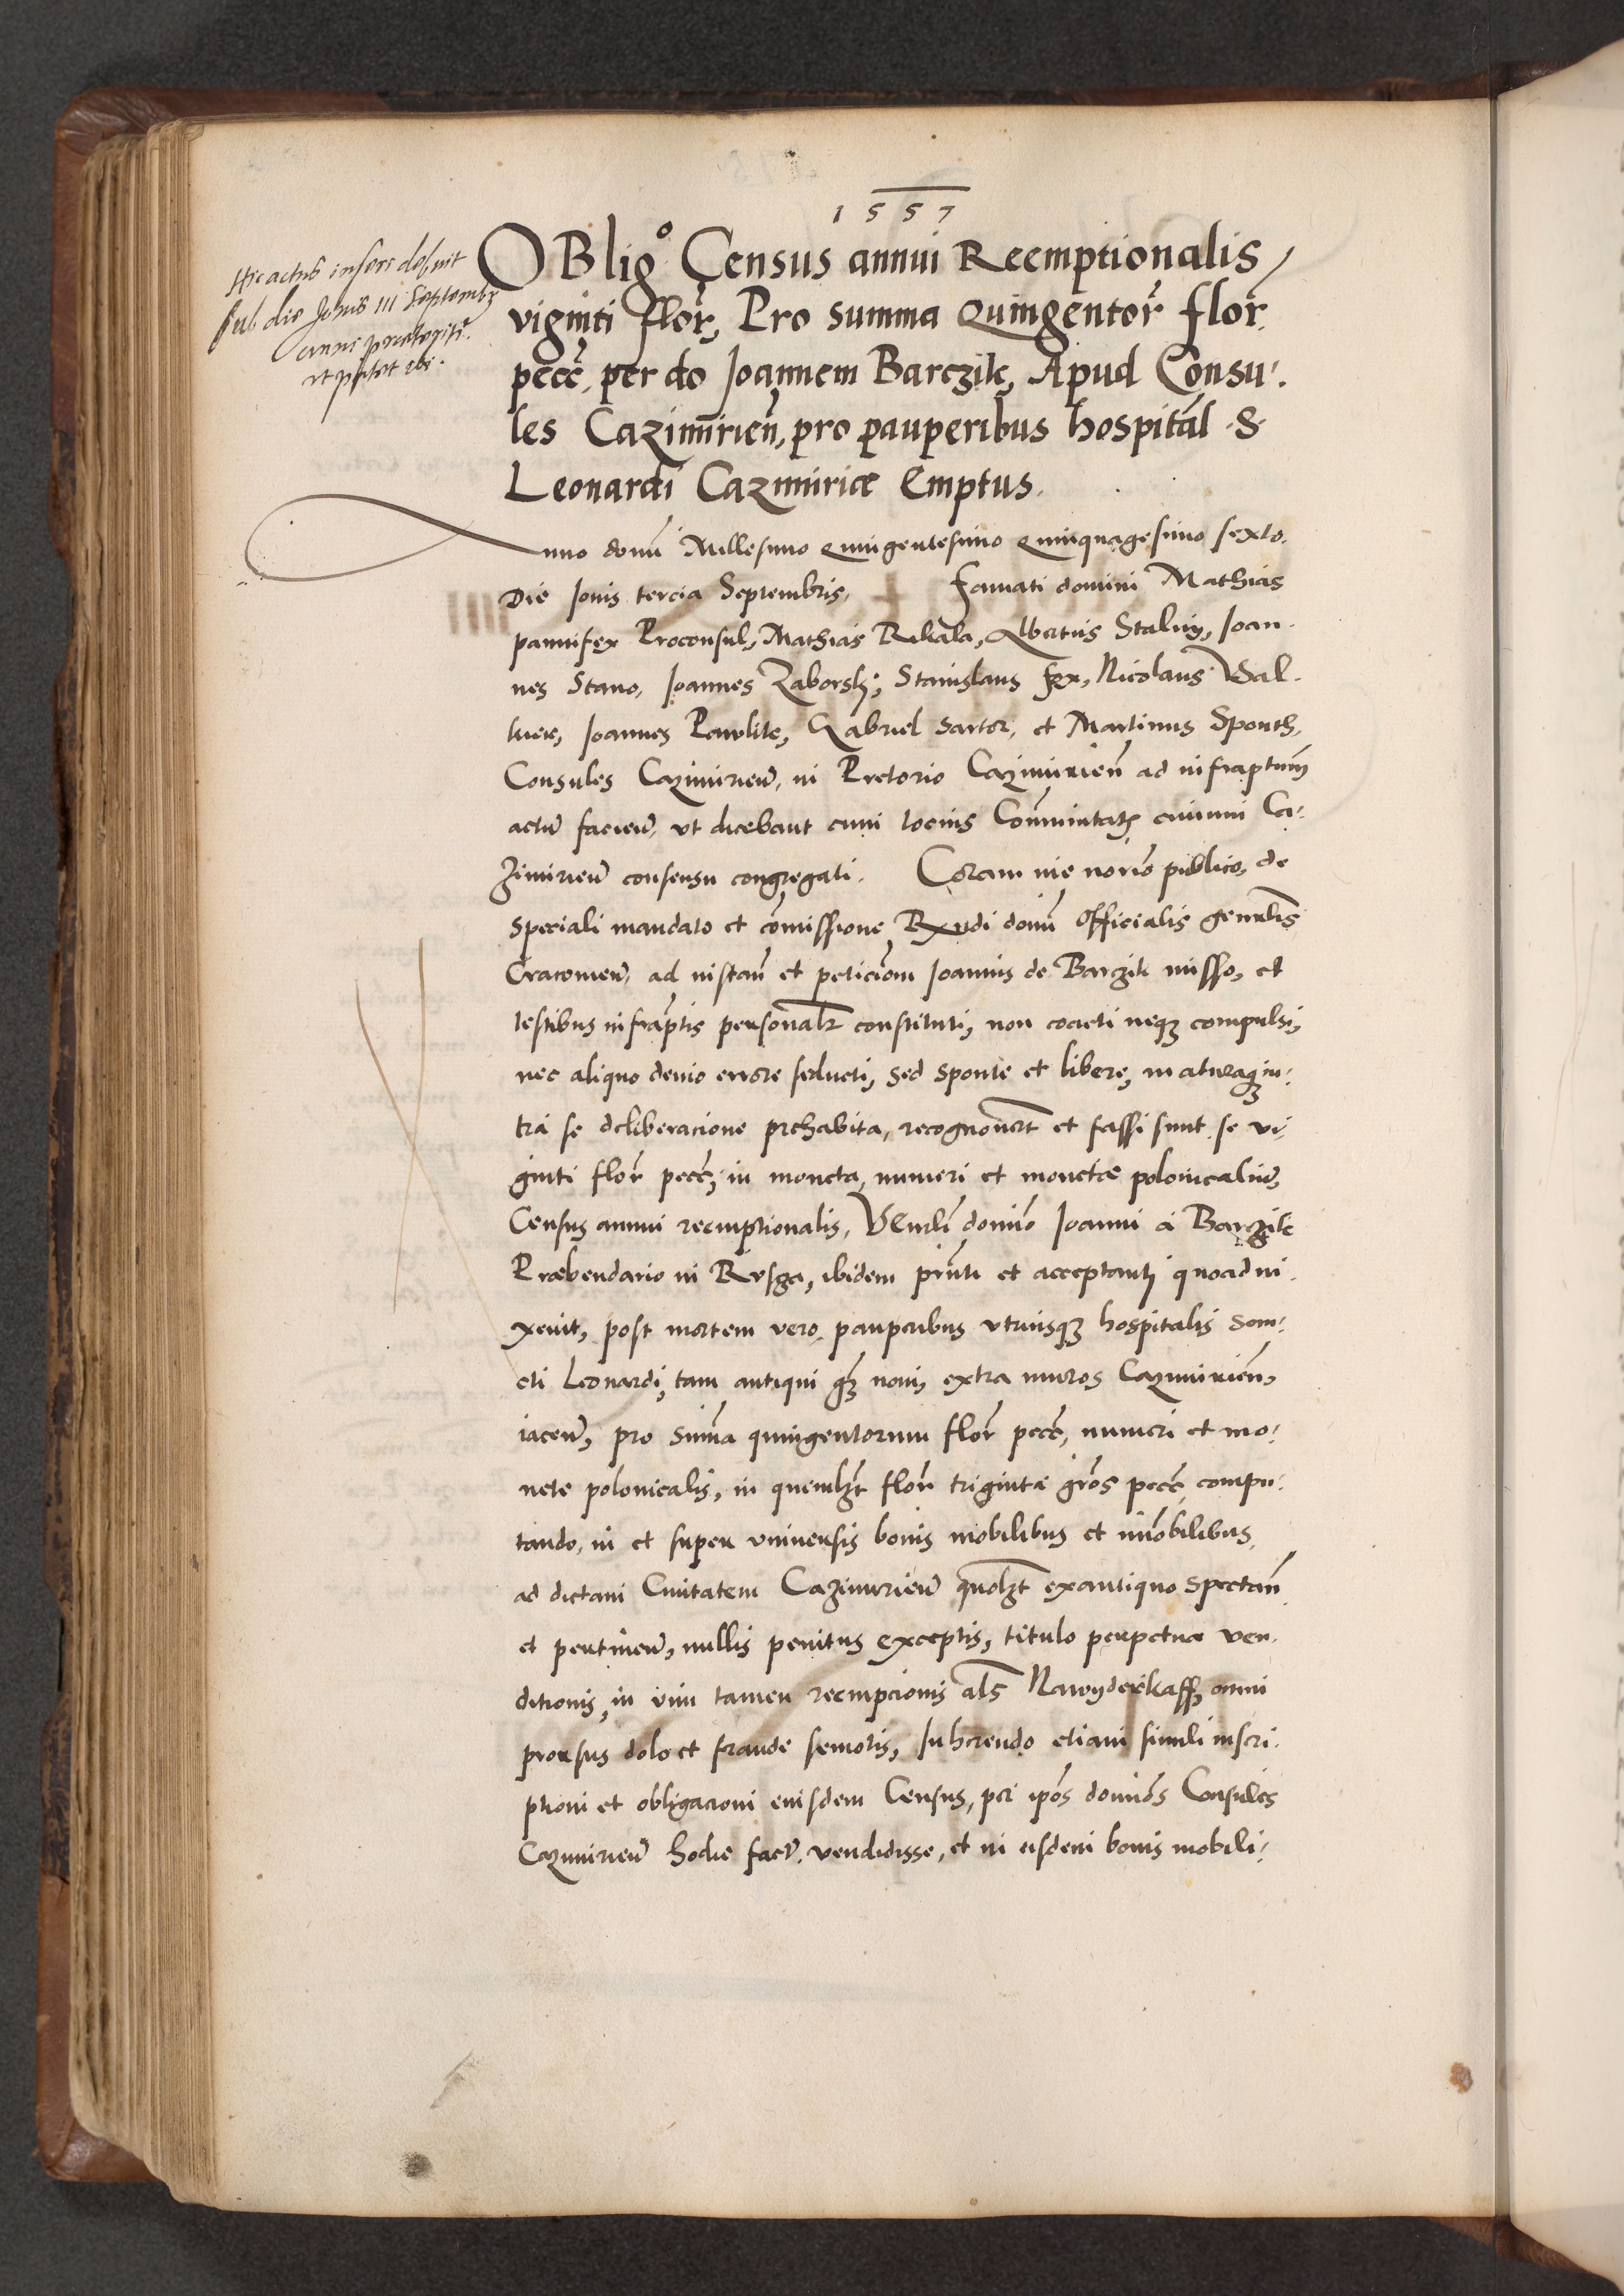 1557
Hic actus inseri debuit
sub die Jovis III Septembr
anni præteriti.
ut patet ibi.
OBligo Census annui Reemptionalis
viginti flor, Pro summa Quingentor flor
pecc, per do Joannem Barczik, Apud Consu-
les Cazimirien, pro pauperibus hospital S
Leonardi Cazimiriæ Emptus.
Anno domi Millesimo Quingentesimo Quinquagesimo sexto.
Die Jovis tercia Septembris, Famati domini Mathias
pannifex Proconsul, Mathias Rikala, Albertus Stalny, Joan-
nes Stano, Joannes Zaborski, Stanislaus fex, Nicolaus Wal-
Joannes Pawlik, Gabriel Sartor, et Martinus Sponth,
Consules Cazimirien, in Pretorio Cazimirien ad infraptum
actu facien, ut dicebant cum tocius Commitatis civium Ca-
zimirien consensu congregati. Coram me norio publico, de
speciali mandato et comissione Rxndi domi Officialis genralis
Cracovien, ad instan et peticiom Joannis de Barczik misso, et
testibus infraptis personalr constituti, non coacti neq3 compulsi,
nec aliquo devio errore seducti, sed sponte et libere, maturaq3 in-
tra se deliberacione prehabita, recognovert et fassi sunt se vi-
ginti flor pecc, in moneta, numeri et monetæ polonicalium,
Census annui reemptionalis, VEnrli domino Joanni a Barczik
Præbendario in Rusga, ibidem prnti et acceptanti quoad vi-
xerit, post mortem vero pauperibus utriusq3 hospitalis San-
cti Leonardi, tam antiqui q3 novi, extra muros Cazimirien,
iacen, pro summa quingentorum flor pecc, numeri et mo-
nete polonicalis, in quemlzt flor triginta gros pecc compu-
tando, in et super universis bonis mobilibus et imobilibus,
ad dictam Civitatem Cazimirien quolzt ex antiquo spectan
et pertinen, nullis penitus exceptis, titulo perpetuæ ven-
ditionis, in vim tamen reempcionis als Nawyderkaff, omni
prorsus dolo et fraude semotis, Inherendo etiam simili inscri-
ptioni et obligacioni eiusdem Census, per ipos dominos Consules
Cazimirien hodie fact, vendidisse, et in eisdem bonis mobili-